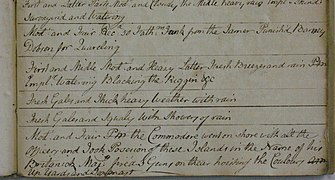 First and Latter Parts Mod and Cloudy, the Midle heavy rain
Surveying and Watering
Mod and Fair Rec 50 Fath Junk from the Tamer Punish'd Barnaby
Dobson for Quareling
First and Midle Mod and Heazy Latter Fresh Breezes and rain
Empl Watering Blacking the Riggin &c
Fresh Gales and Thick heazy weather with rain
Fresh Gales and Squaly with Showers of rain
Mod and Fair the Commodore went on shore with all the
Officers and Took Posesion of these Islands in the Name of his
Britanick Maj fired Guns on thear hoisting the Coulours